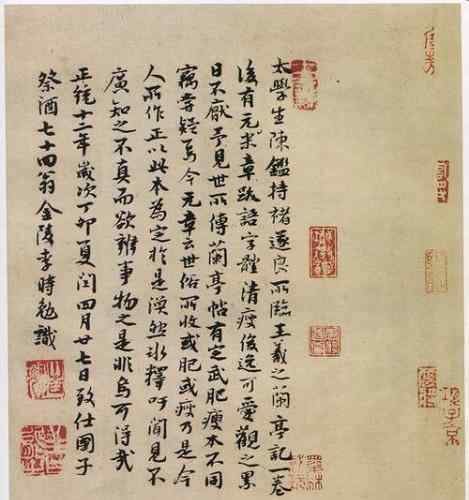 太學生陳鑑持褚遂良所臨王羲之蘭亭記一卷
後有元米章跋語字體清瘦俊逸可愛觀之累
日不厭予見世所傳蘭亭帖有定武肥瘦本不同
竊嘗疑焉今元章云世俗所收或肥或瘦乃是今
人所作正以此本為定於是渙然冰釋吁聞見不
廣知之不真而欲辨事物之是非烏可得哉
正統十二年歲次丁卯夏閏四月廿七日致仕國子
祭酒七十四翁金陵李時勉識